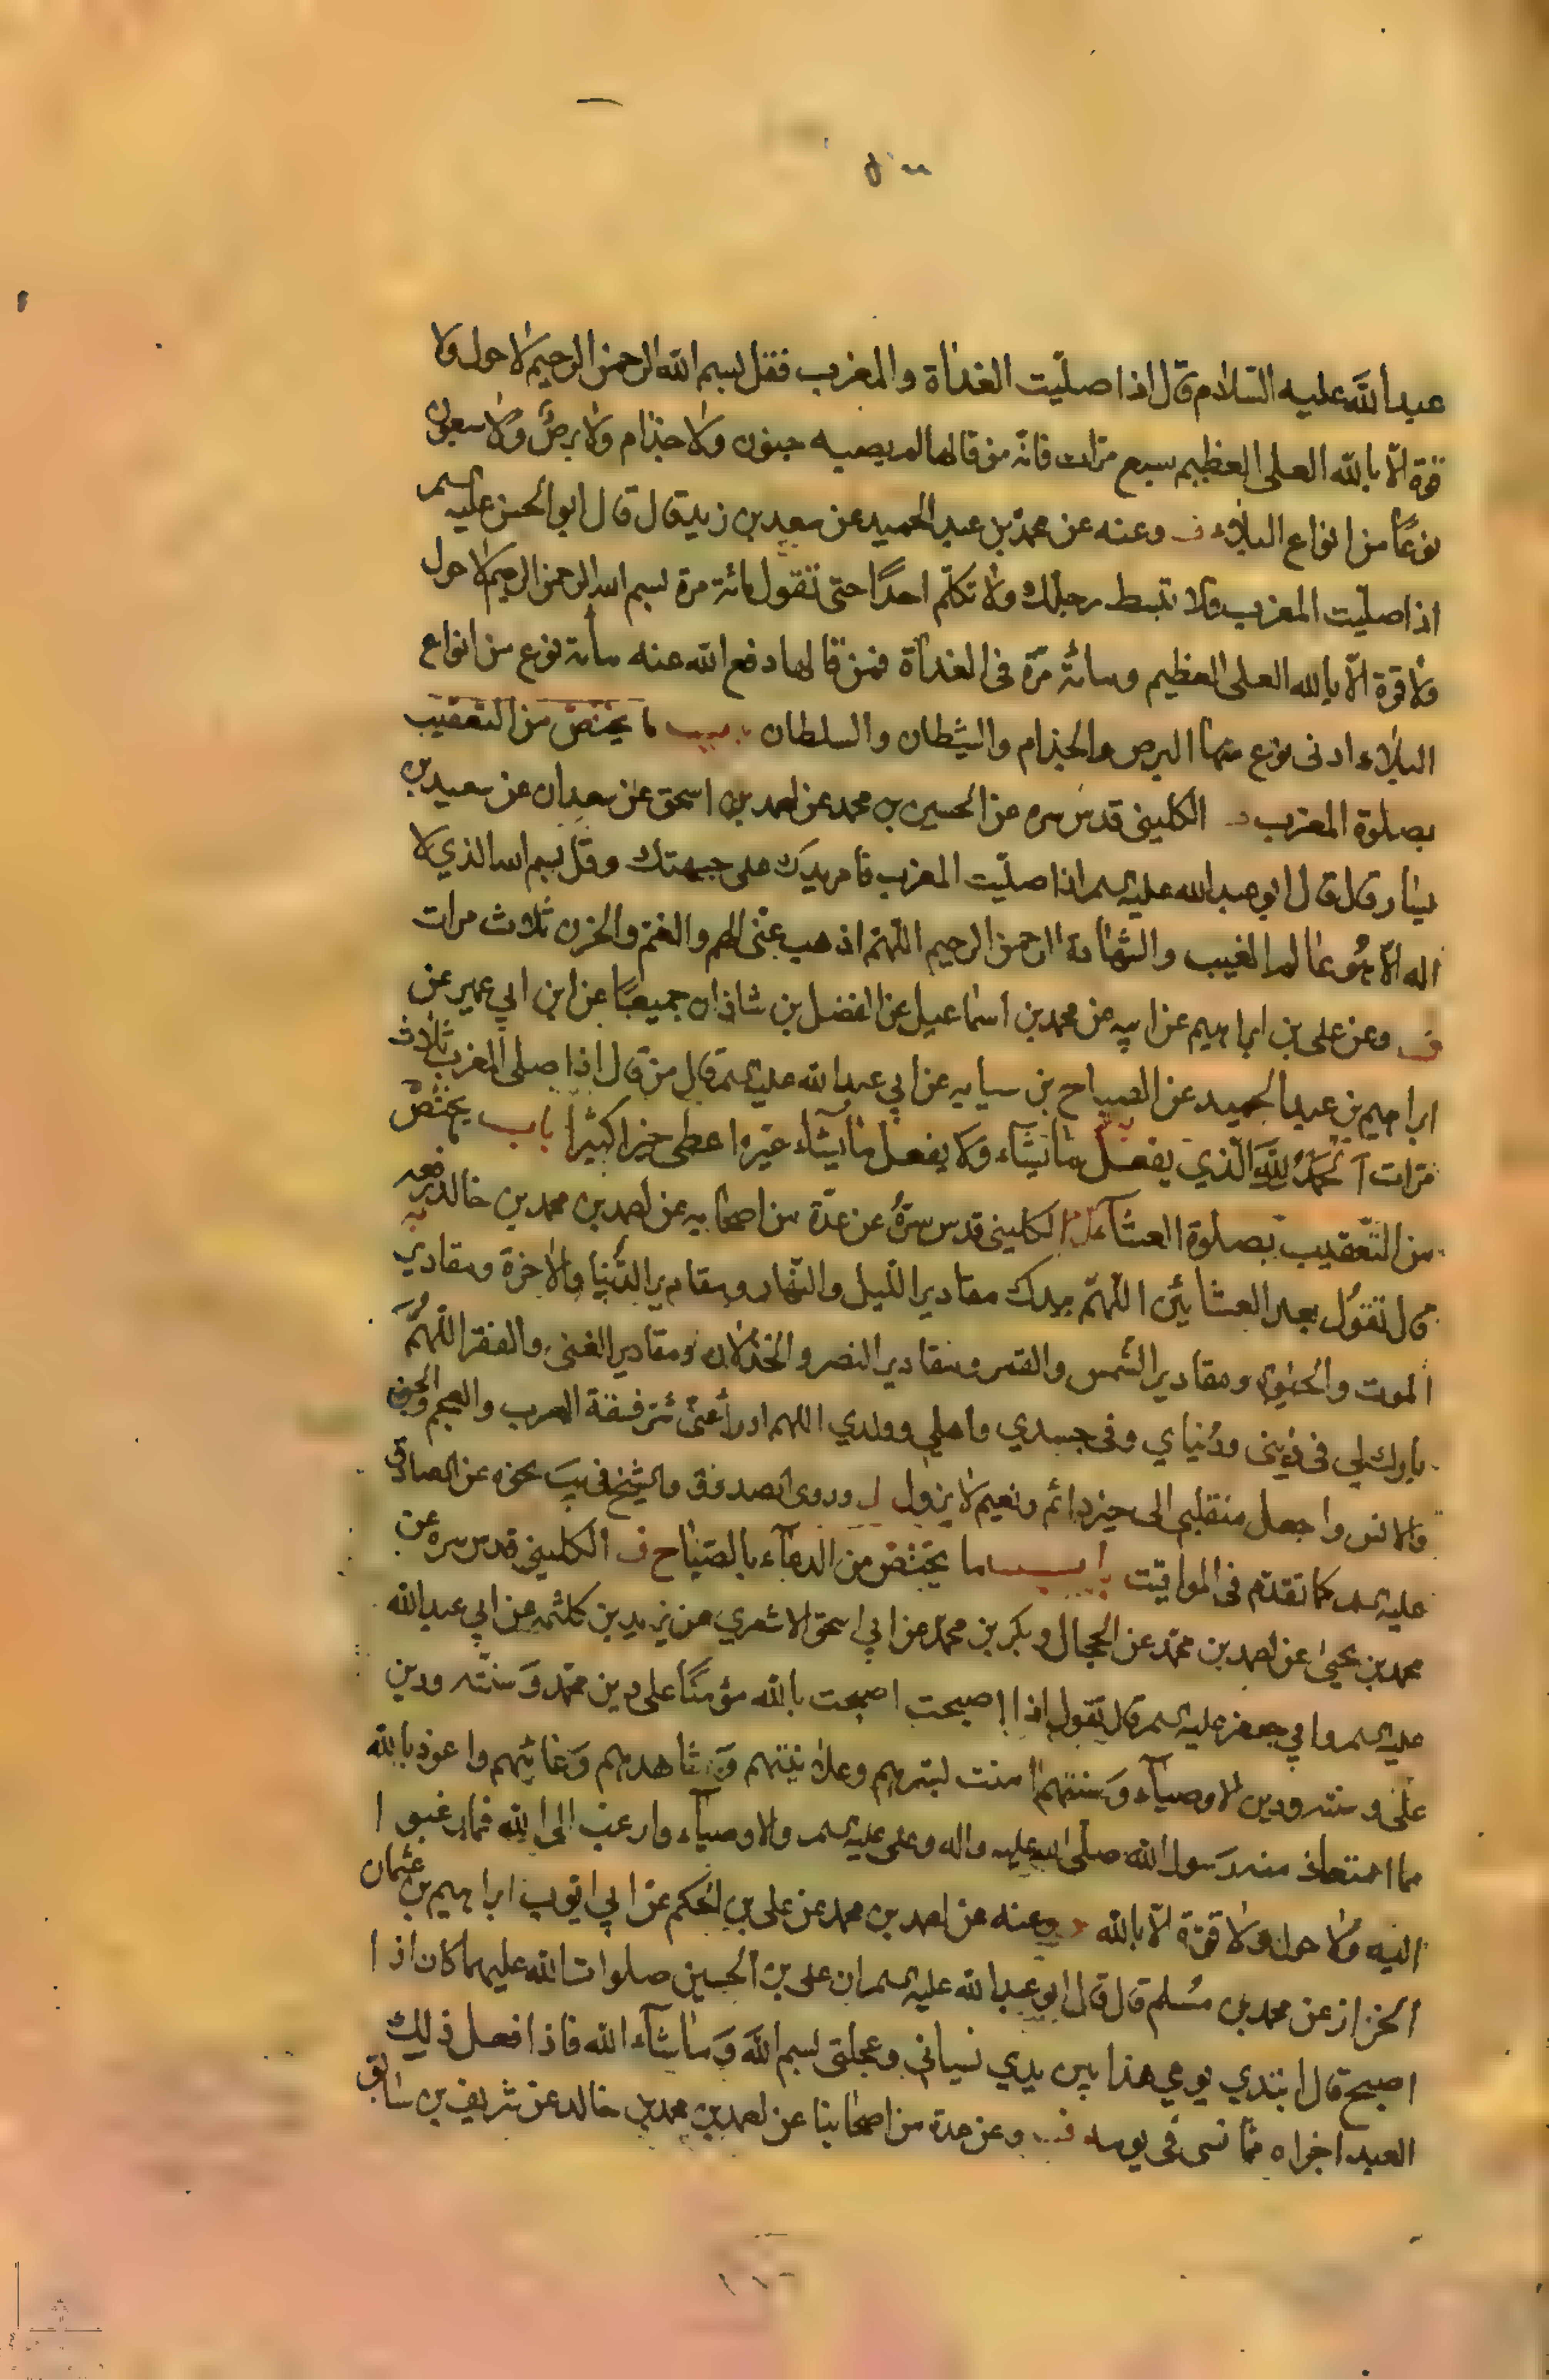 عبدالله عليه السلام قال اذا صليت الغداة والمغرب فقل بسم الله الرحمن الرحيم لا حول ولا
قوة الا بالله العلى العظيم سبع مرات فانه من قالها لم يصبه جنون ولا جذام ولا برص ولا سبعون
نوعا من انواع البلاء ف وعنه عن محمد بن عبد الحميد عن سعد بن زيد قال قال ابو الحسن عليه السلم
اذا صليت المغرب ولا تبسط رجلك ولا تكلم احدا حتى تقول مائة مرة بسم الله الرحمن الرحيم لا حول
ولا قوة الا بالله العلى العظيم ومائة مرة فى الغداة فمن قالها دفع الله عنه مائة نوع من انواع
البلاء ادنى نوع منها البرص والجذام والشيطان والسلطان باب ما يختص من التعقيب
بصلوة المغرب الكلينى قدس سره عن الحسين بن محمد عن احمد بن اسحق عن سعدان عن سعيد بن
يسار قال قال ابو عبدالله عليه السلم اذا صليت المغرب فامر يدك على جبهتك وقل بسم الله الذي لا
اله الا هو عالم الغيب والشهادة الرحمن الرحيم اللهم اذهب عنى الهم والغم والحزن ثلاث مرات
ف وعن على بن ابراهيم عن ابيه عن محمد بن اسماعيل عن الفضل بن شاذان جميعا عن ابن ابي عمير عن
ابراهيم بن عبد الحميد عن الصباح بن سيابه عن ابي عبدالله عليه السلم قال من قال اذا صلى المغرب ثلاث
مرات الحمد لله الذي يفعل ما يشاء ولا يفعل ما يشاء غيره اعطى خيرا كثيرا باب يختص
من التعقيب بصلوة العشاء الكلينى قدس سره عن عدة من اصحابه عن احمد بن محمد بن خالد رفعه
قال تقول بعد العشائين اللهم بيدك مقادير الليل والنهار ومقادير الدنيا والاخرة ومقادير
الموت والحيوة ومقادير الشمس والقمر ومقادير النصر والخذلان ومقادير الغنى والفقر اللهم
بارك لي فى دينى ودنياي وفى جسدي واهلي وولدي اللهم ادرأ عنى شر فسقة العرب والعجم والجن
والانس واجعل منقلبى الى خير دائم ونعيم لا يزول وروى الصدوق والشيخ فى يب نحوه عن الصادق
عليه السلم كما تقدم فى المواقيت باب ما يختص من الدعاء بالصباح ف الكلينى قدس سره عن
محمد بن يحيى عن احمد بن محمد عن الحجال وبكر بن محمد عن ابي اسحق الاشعري عن يزيد بن كلثمه عن ابي عبدالله
عليه السلم وابي جعفر عليه السلم قال تقول اذا اصبحت اصبحت بالله مؤمنا على دين محمد وسنته ودين
على وسنته ودين الاوصياء وسنتهم امنت بسرهم وعلانيتهم وشاهدهم وغائبهم واعوذ بالله
مما استعاذ منه رسول الله صلى الله عليه واله وعلى عليه السلم والاوصياء وارغب الى الله فيما رغبوا
اليه ولا حول ولا قوة الا بالله وعنه عن احمد بن محمد عن على بن الحكم عن ابي ايوب ابراهيم بن عثمان
الخزاز عن محمد بن مسلم قال قال ابو عبدالله عليه السلم ان على بن الحسين صلوات الله عليهما كان اذا
اصبح قال ابتدي يومي هذا بين يدي نسيانى وعجلتى بسم الله وما شاء الله فاذا فعل ذلك
العبد اجزاه مما نسى فى يومه ف وعن عدة من اصحابنا عن احمد بن محمد بن خالد عن شريف بن سابق